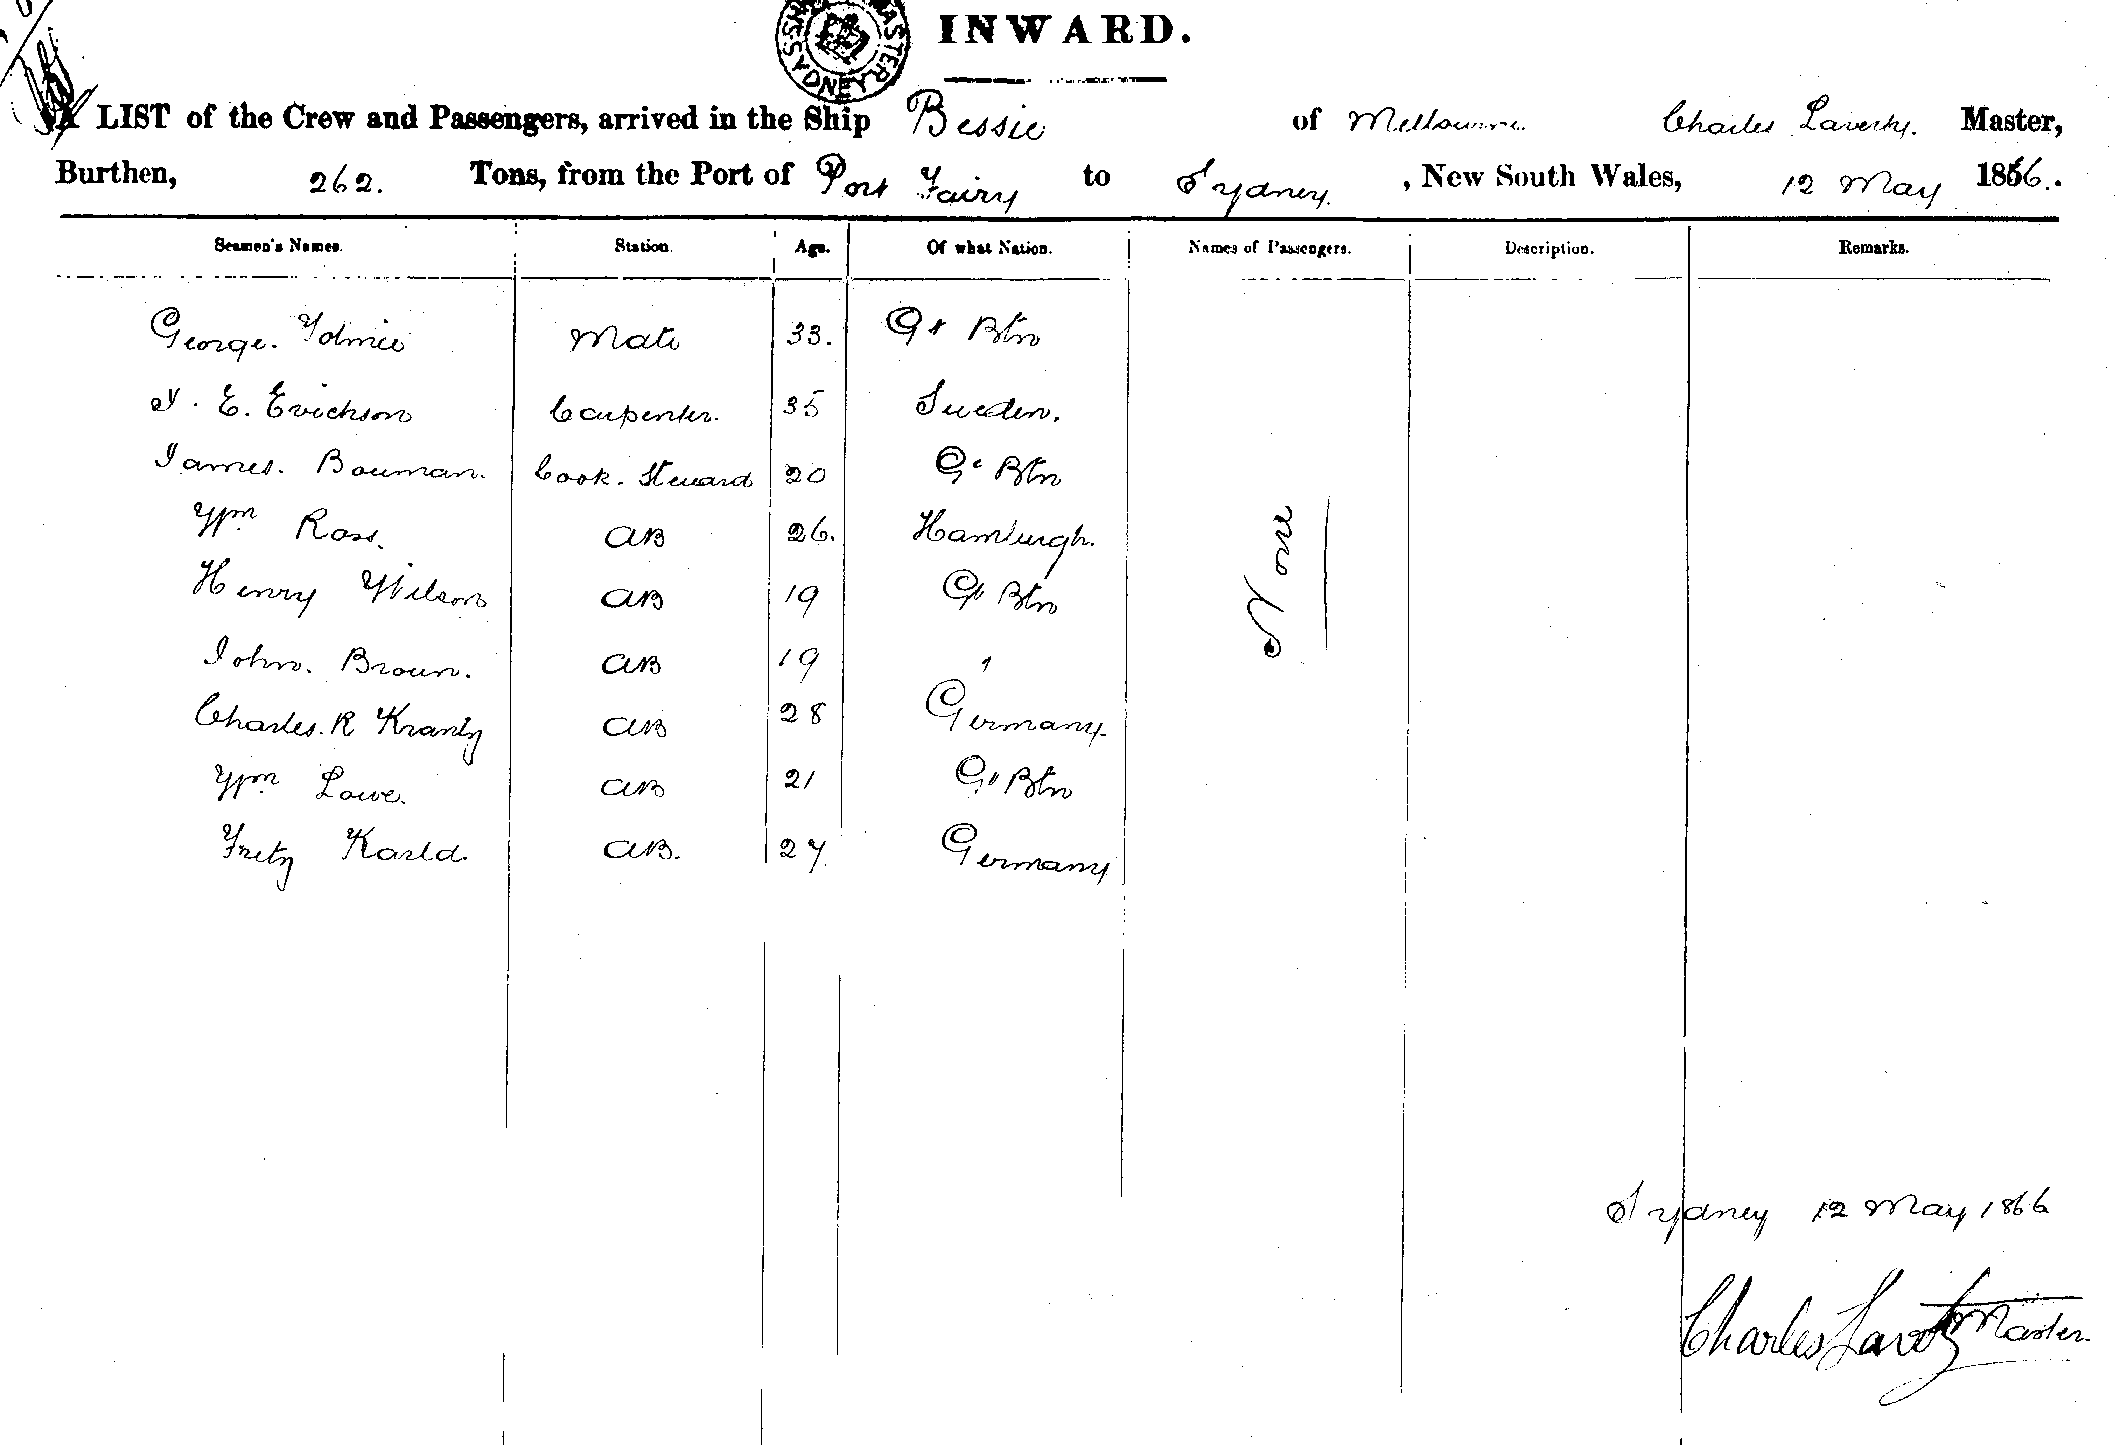 INWARD.
A LIST of the Crew and Passengers, arrived in the Ship Bessie of Melbourne Charles Laverty. Master,
Burthen, 262. Tons, from the Port of Port Fairy to Sydney. , New South Wales, 12 May 1866.
Seamen's Names. Station. Age. Of what Nation. Names of Passengers. Description. Remarks.
George. Tolmie Mate 33. Gt Btn
E. Erickson Carpenter. 35 Sweden.
James. Bowman. Cook. Steward 20 Gt Btn
Wm Ross. AB 26. Hamburgh.
Henry Wilson AB 19 Gt Btn
John. Brown. AB 19 "
Charles. R Krantz AB 28 Germany.
Wm Lowe. AB 21 Gt Btn
Fritz Karld. AB. 27 Germany
None
Sydney 12 May 1866
Charles Laverty Master.